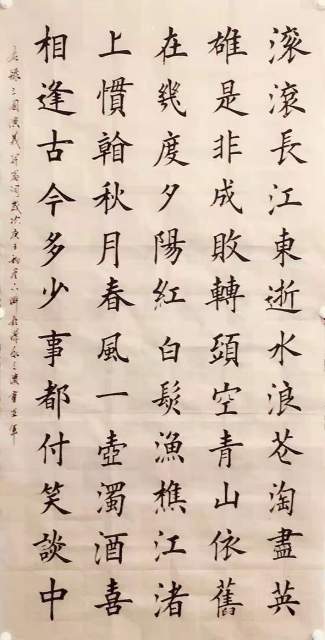 滚滚長江東逝水浪花淘盡英
雄是非成敗轉頭空青山依舊
在幾度夕陽紅白髮漁樵江渚
上慣看秋月春風一壺濁酒喜
相逢古今多少事都付笑談中
右錄三國演義開篇詞歲次庚子